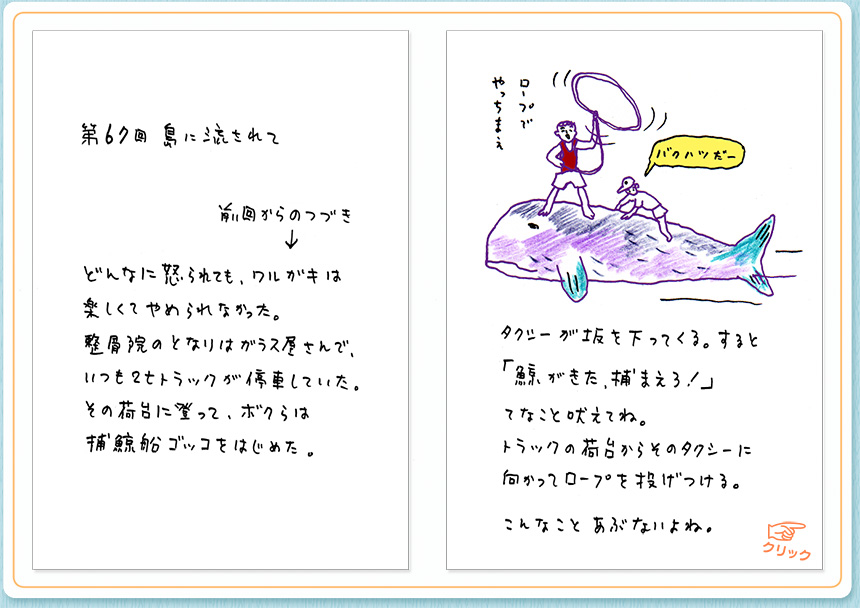 第67回 島に流されて
前回からのつづき
↓
どんなに怒られても、ワルガキは
楽しくてやめられなかった。
整骨院のとなりはガラス屋さんで、
いつも2tトラックが停車していた。
その荷台に登って、ボクらは
捕鯨船ゴッコをはじめた。
ロープで
やっちまえ
バクハツだー
タクシーが坂を下ってくる。すると
「鯨がきた、捕まえろ!」
てなこと吠えてね。
トラックの荷台からそのタクシーに
向かってロープを投げつける。
こんなこと あぶないよね。
クリック